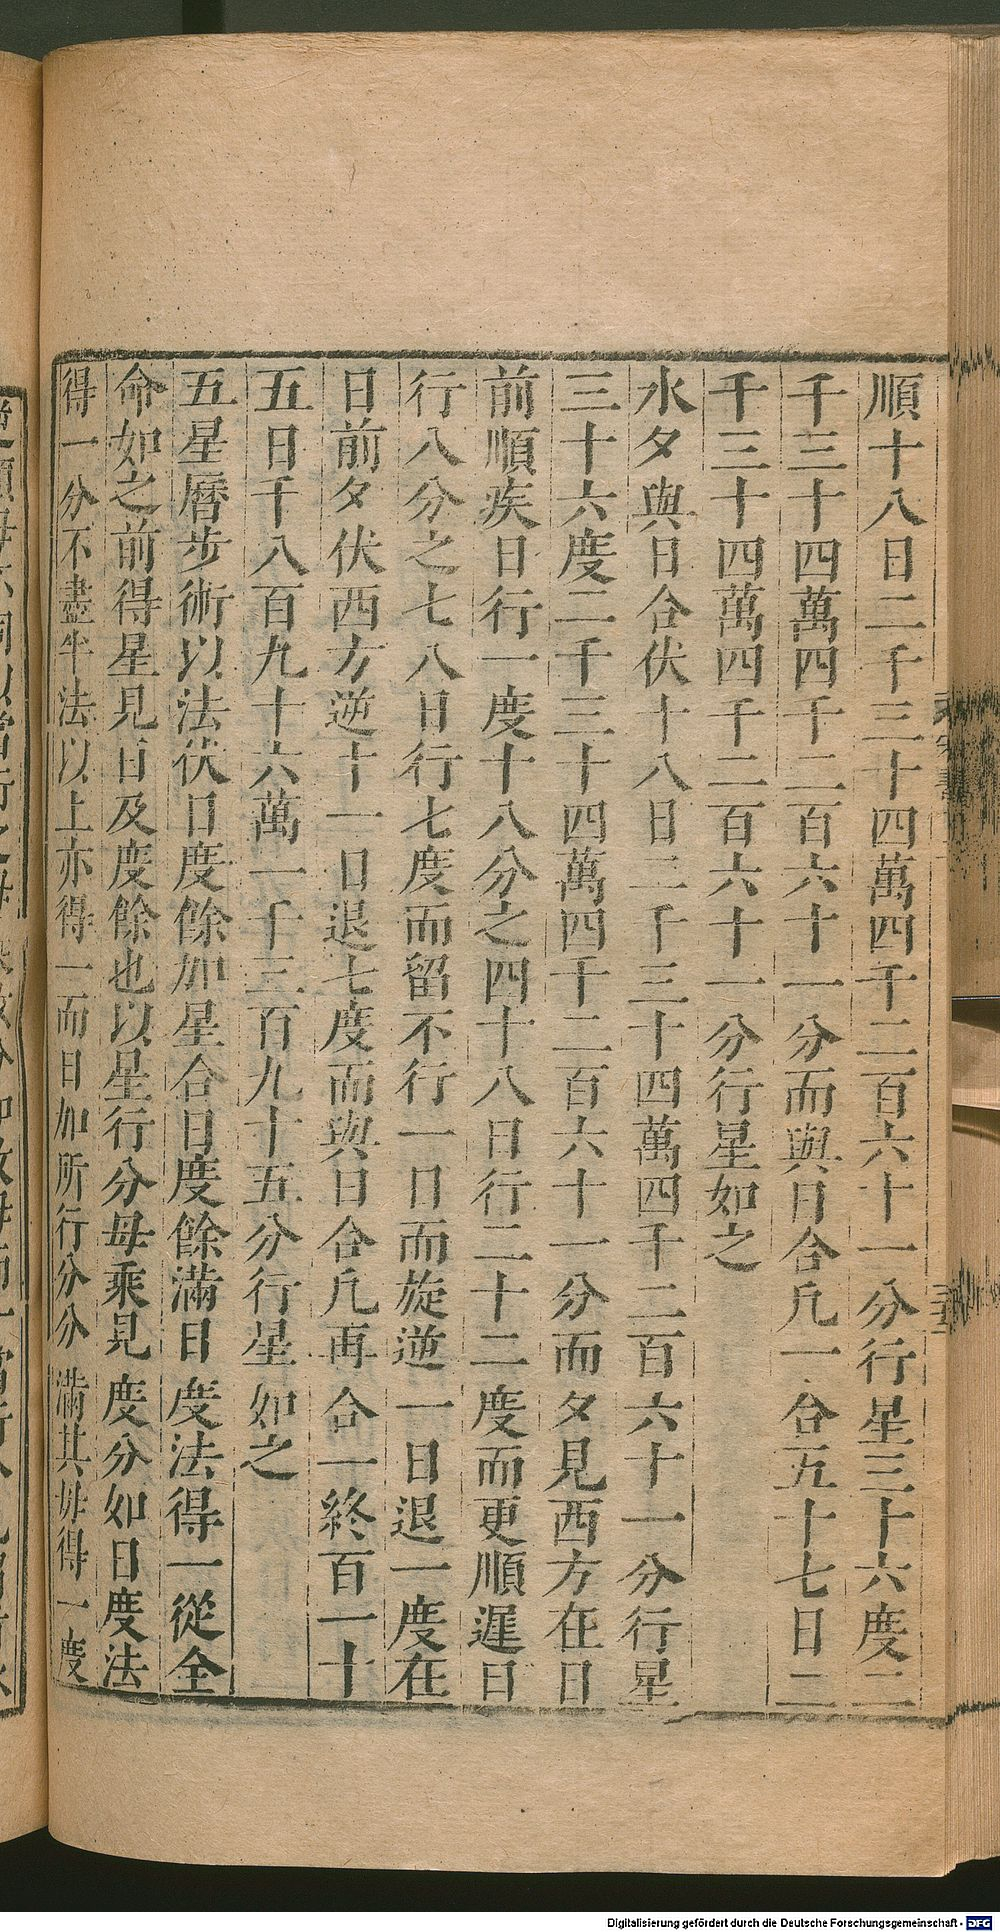 順十八日二千三十四萬四千二百六十一分行星三十六度二
千三十四萬四千二百六十一分而與日合凡一合五十七日二
千三十四萬四千二百六十一分行星如之
水夕與日合伏十八日二千三十四萬四千二百六十一分行星
三十六度二千三十四萬四千二百六十一分而夕見西方在日
前順疾日行一度十八分之四十八日行二十二度而更順遲日
行八分之七八日行七度而留不行一日而旋逆一日退一度在
日前夕伏西方逆十一日退七度而與日合凡再合一終百一十
五日千八百九十六萬一千三百九十五分行星如之
五星曆步術以法伏日度餘加星合日度餘滿日度法得一從全
命如之前得星見日及度餘也以星行分母乘見度分如日度法
得一分不盡半法以上亦得一而日加所行分分滿其母得一度
Digitalisierung gefördert durch die Deutsche Forschungsgemeinschaft - DFG